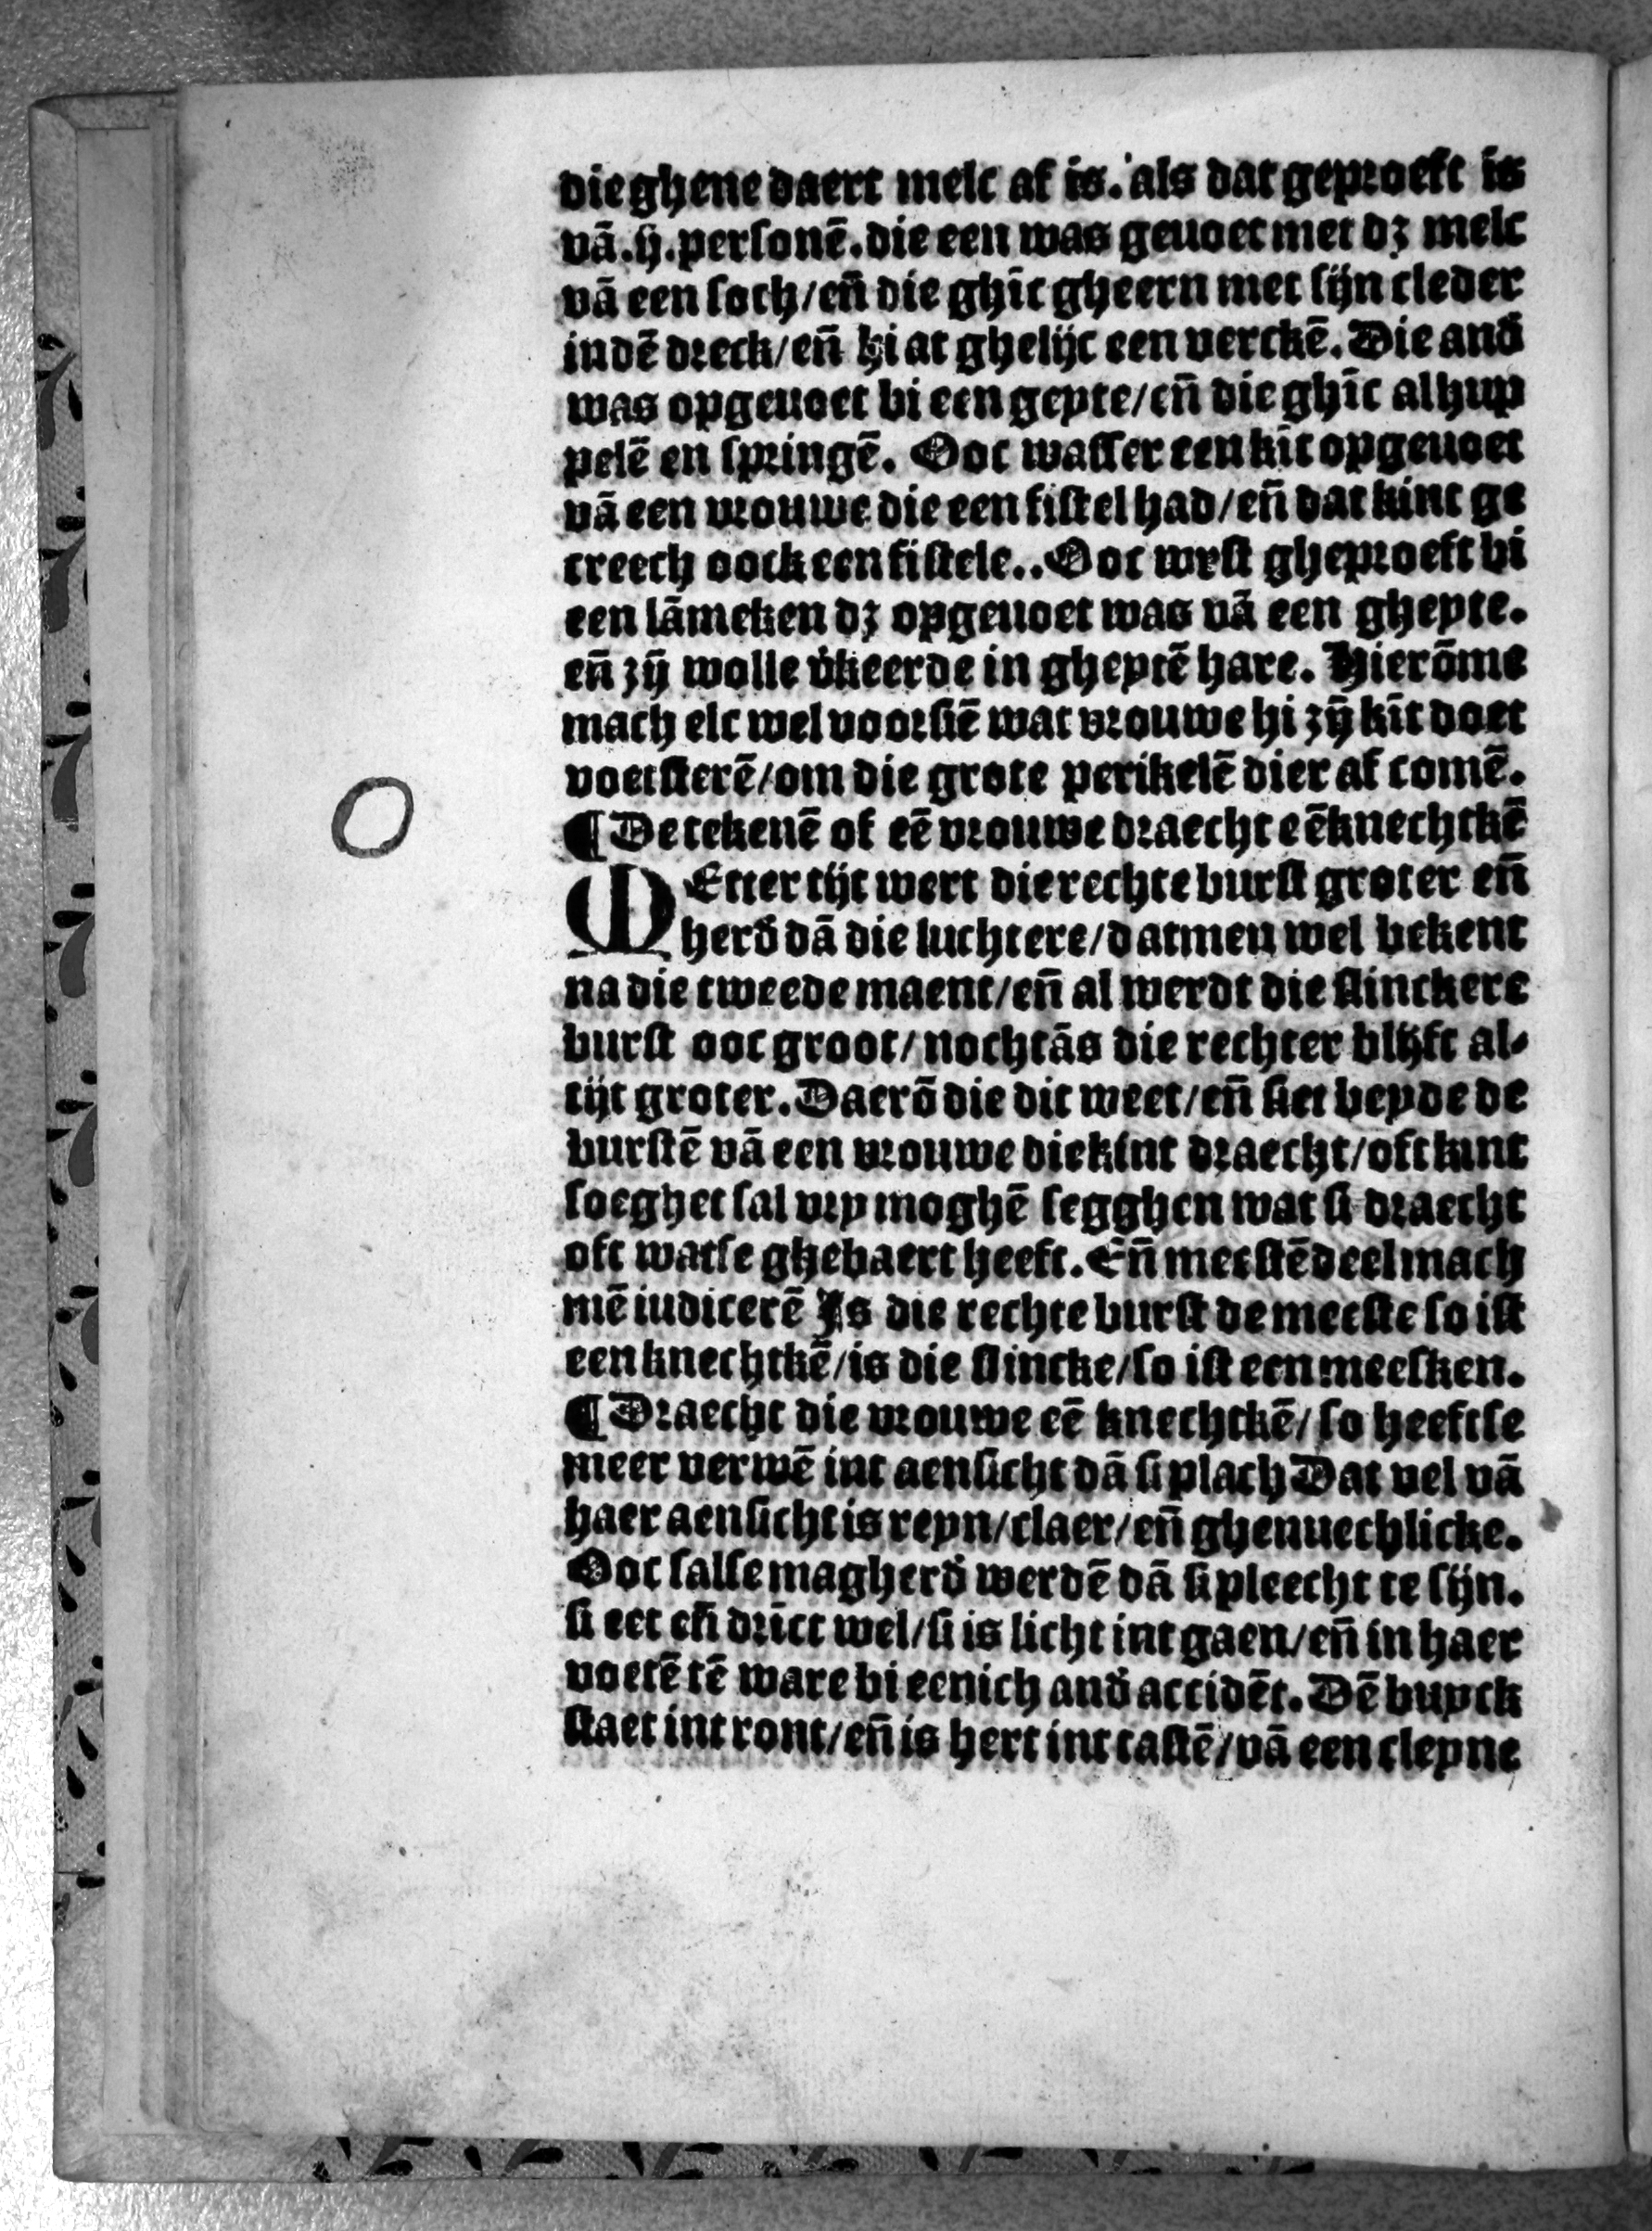 die ghene daert melc af is. als dat geproeft is
vā.ij.personē.die een was geuoet met dz melc
vā een soch/eñ die ghīc gheern met sijn cleder
indē dreck/eñ hi at ghelijc een verckē. Die and̄
was opgeuoet bi een geyte/eñ die ghīc al hup
pelē en springē. Ooc wasser een kīt opgeuoet
vā een vrouwe die een fistel had/eñ dat kint ge
creech oock een fistele.. Ooc wrst gheproeft bi
een lāmeken dz opgeuoet was vā een gheyte.
eñ zȳ wolle v̄keerde in gheytē hare. Hierōme
mach elc wel voorsiē wat vrouwe hi zȳ kīt doet
voetsterē/om die grote perikelē dier af comē.
¶ De tekenē of eē vrouwe draecht eē knechtkē
MEtter tijt wert die rechte burst groter eñ
herd̄ dā die luchtere/datmen wel bekent
na die tweede maent/eñ al werdt die slinckere
burst ooc groot/nochtās die rechter blijft al-
tijt groter. Daerō die dit weet/eñ siet beyde de
burstē vā een vrouwe die kint draecht/oft kint
soeghet sal vry moghē segghen wat si draecht
oft watse ghebaert heeft. Eñ meestēdeel mach
mē iudicerē Is die rechte burst de meeste so ist
een knechtkē/is die slincke/so ist een meesken.
¶ Draecht die vrouwe eē knechtkē/so heeftse
meer verwē int aensicht dā si plach Dat vel vā
haer aensicht is reyn/claer/eñ ghenuechlicke.
Ooc salse magherd̄ werdē dā si pleecht te sijn.
si eet eñ drīct wel/si is licht int gaen/eñ in haer
voetē tē ware bi eenich and̄ accidēt. Dē buyck
staet int ront/eñ is hert int tastē/vā een cleyne